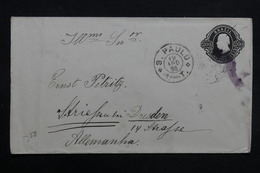 Illmo Snr.
S. PAULO
Ernst Petritz
Striesen bei Dresden
14 Strasse
Allemanha.